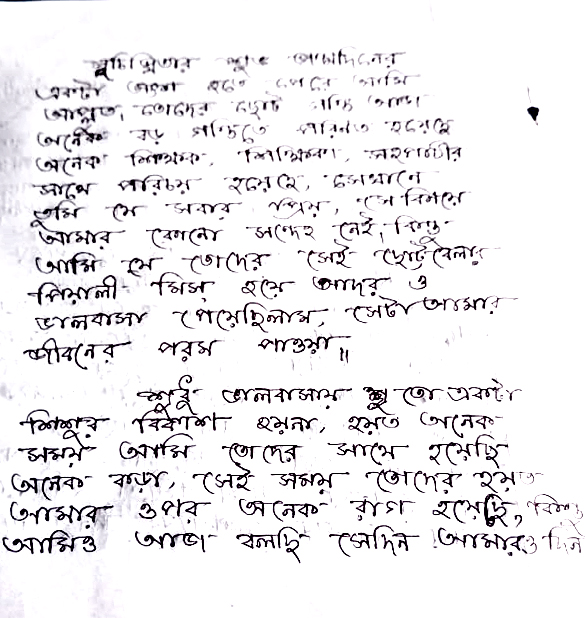 সুচিস্মিতার শুভ জন্মদিনের
একটা অংশ হতে পেরে আমি
আপ্লুত, তোদের ছোট্ট গন্ডি আজ
অনেক বড় গন্ডিতে পরিনত হয়েছে
অনেক শিক্ষক, শিক্ষিকা, সহপাঠীর
সাথে পরিচয় হয়েছে, সেখানে
তুমি যে সবার প্রিয়, সে বিষয়ে
আমার কোনো সন্দেহ নেই, কিন্তু
আমি যে তোদের সেই ছোট্টবেলার
পিয়ালী মিস্ হয়ে আদর ও
ভালবাসা পেয়েছিলাম, সেটা আমার
জীবনের পরম পাওয়া॥
শুধু ভালবাসায় তো একটা
শিশুর বিকাশ হয়না, হয়ত অনেক
সময় আমি তোদের সাথে হয়েছি
অনেক কড়া, সেই সময় তোদের হয়ত
আমার ওপর অনেক রাগ হয়েছি, কিন্তু
আমিও আজ বলছি সেদিন আমারও দিন